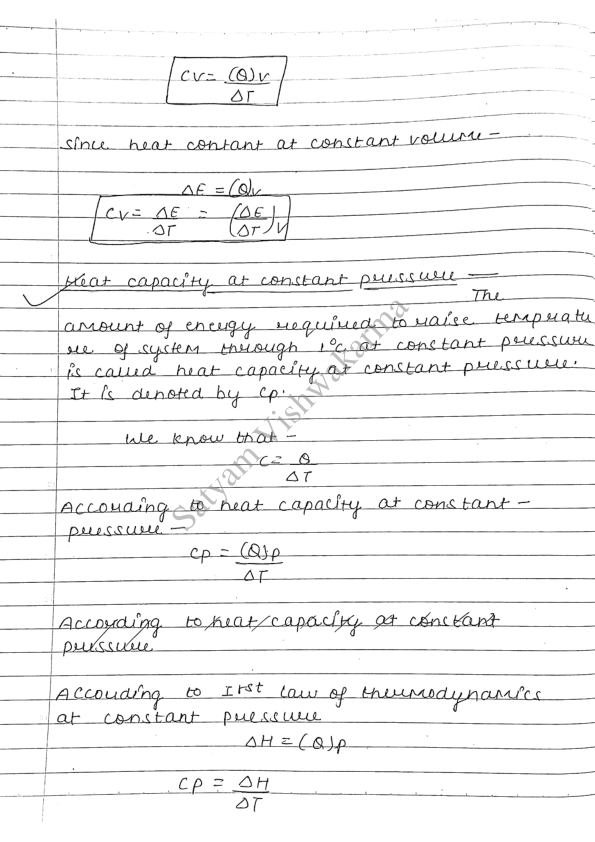 CV = (Q)V
ΔT
Since heat contant at constant volume -
ΔE = (Q)V
CV = ΔE = (ΔE)
ΔT (ΔT)V
Heat capacity at constant pressure —
The
amount of energy required to raise tempratu
re of system through 1°C at constant pressure
is called heat capacity at constant pressure.
It is denoted by Cp.
We know that -
C = Q
ΔT
According to heat capacity at constant -
pressure -
Cp = (Q)p
ΔT
According to heat capacity at constant
pressure
According to Irst law of thermodynamics
at constant pressure
ΔH = (Q)p
Cp = ΔH
ΔT
Satyam Vishwakarma